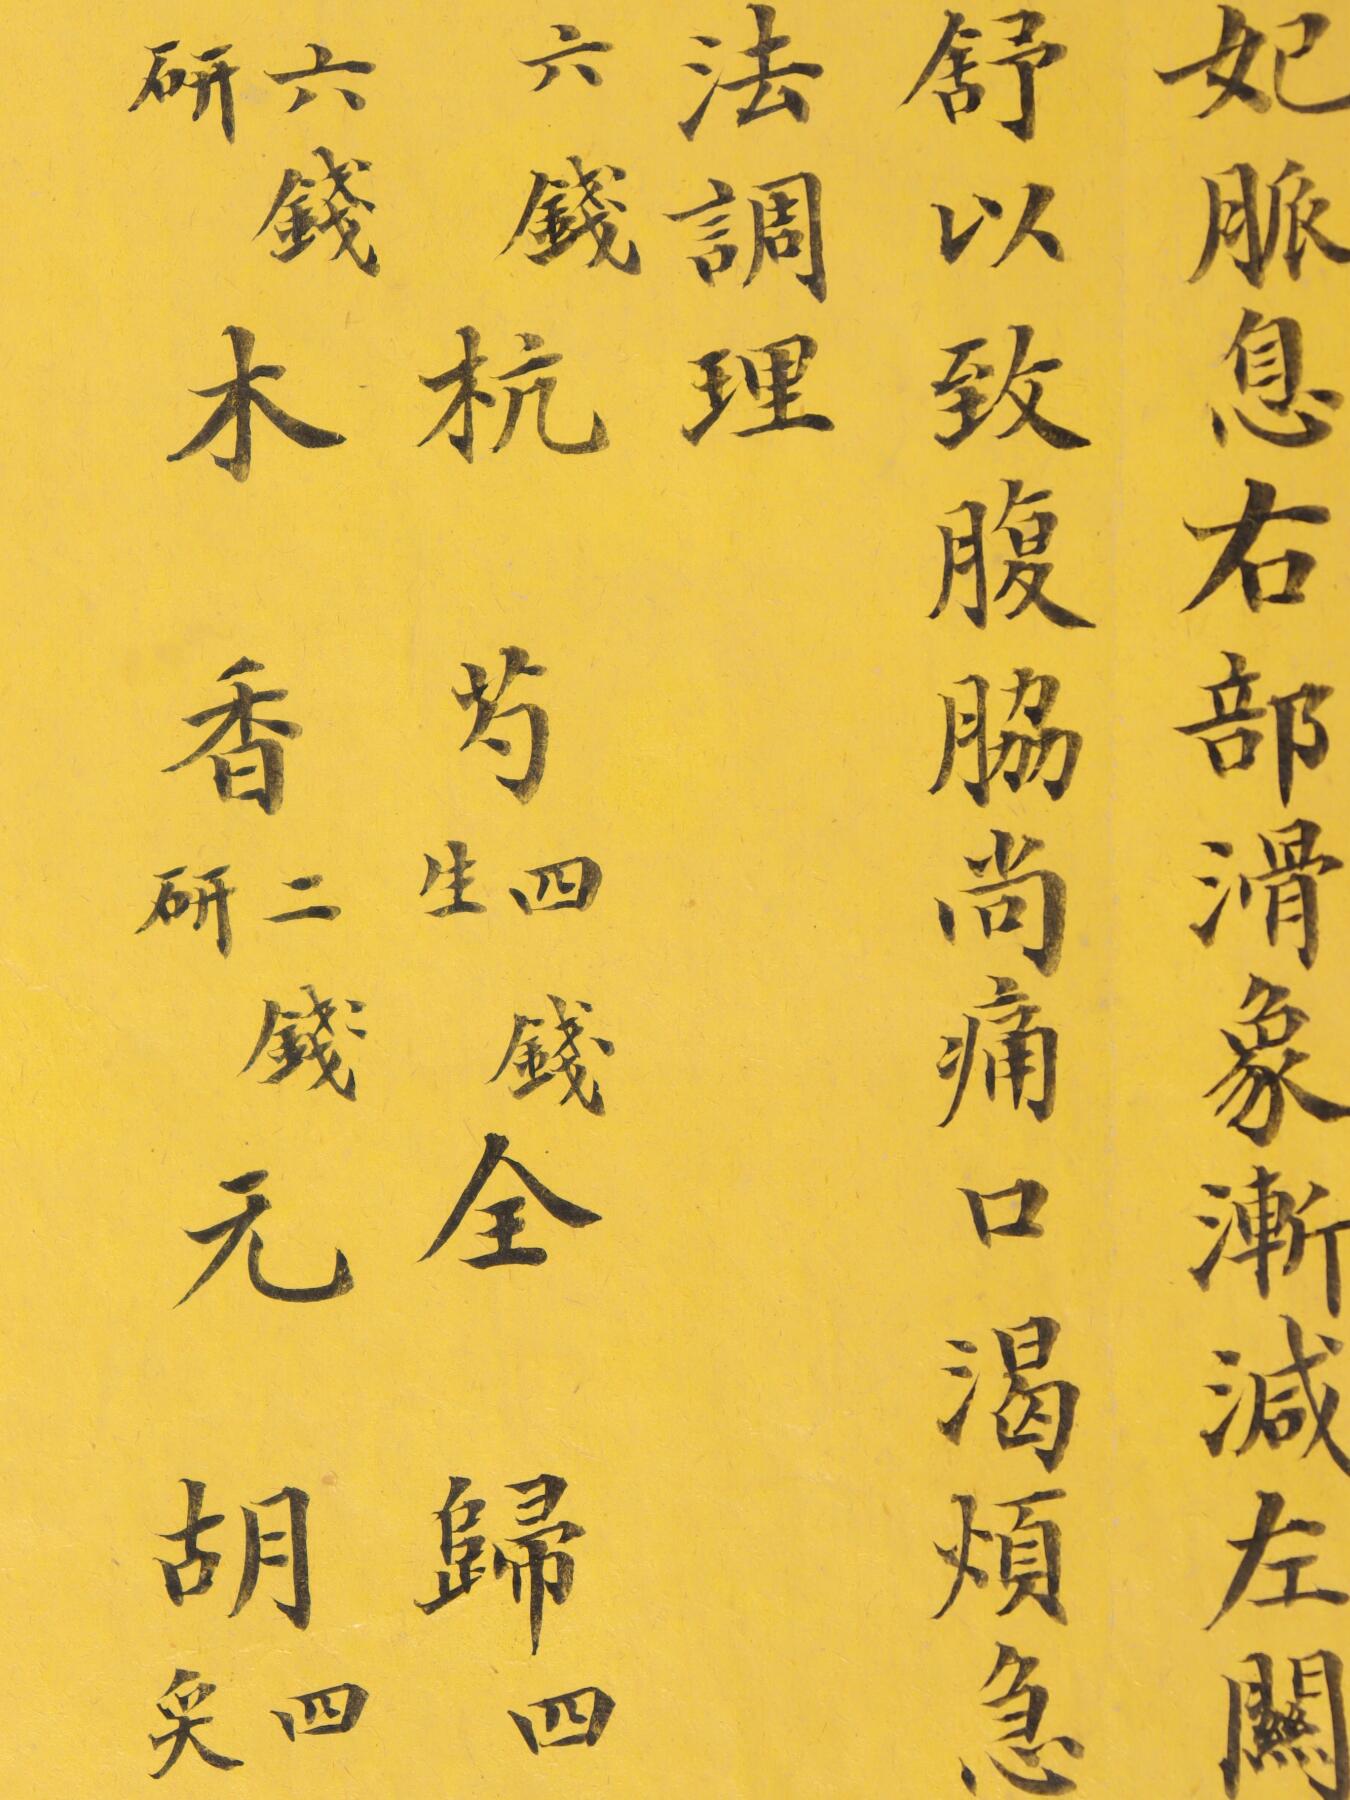 妃脈息右部滑象漸減左關
舒以致腹脇尚痛口渴煩急
法調理
六錢杭芍四錢生全歸四
六錢研木香二錢研元胡四炙